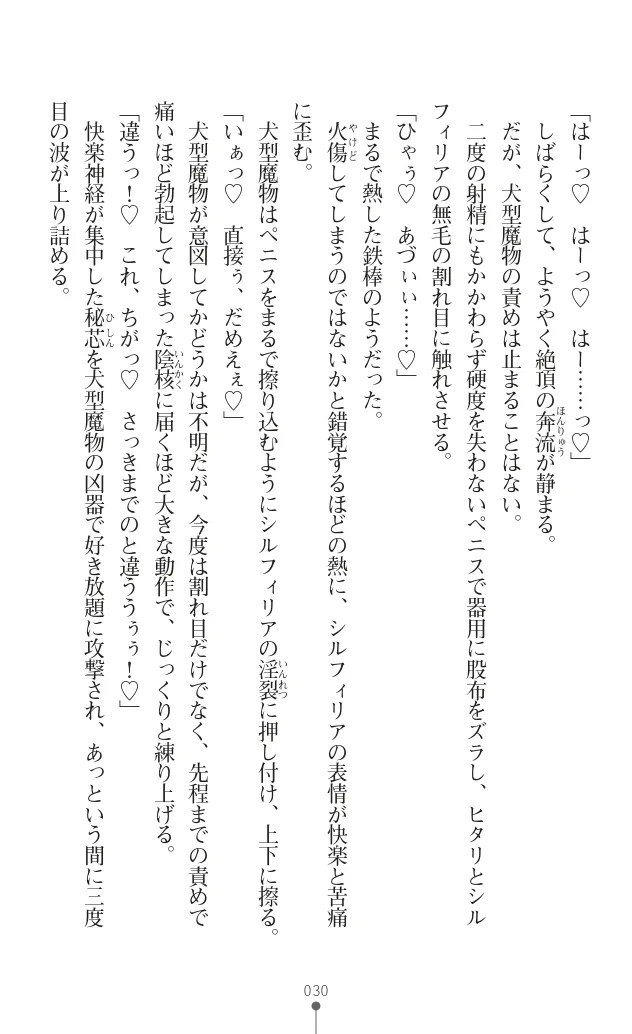 「はーっ♡　はーっ♡　はー……っ♡」
しばらくして、ようやく絶頂の奔流が静まる。
ほんりゅう
だが、犬型魔物の責めは止まることはない。
二度の射精にもかかわらず硬度を失わないペニスで器用に股布をズラし、ヒタリとシル
フィリアの無毛の割れ目に触れさせる。
「ひゃぅ♡　あづぃぃ……♡」
まるで熱した鉄棒のようだった。
火傷してしまうのではないかと錯覚するほどの熱に、シルフィリアの表情が快楽と苦痛
やけど
に歪む。
犬型魔物はペニスをまるで擦り込むようにシルフィリアの淫裂に押し付け、上下に擦る。
いんれつ
「いぁっ♡　直接ぅ、だめえぇ♡」
犬型魔物が意図してかどうかは不明だが、今度は割れ目だけでなく、先程までの責めで
痛いほど勃起してしまった陰核に届くほど大きな動作で、じっくりと練り上げる。
いんかく
「違うっ！♡　これ、ちがっ♡　さっきまでのと違ううぅぅ！♡」
快楽神経が集中した秘芯を犬型魔物の凶器で好き放題に攻撃され、あっという間に三度
ひしん
目の波が上り詰める。
030